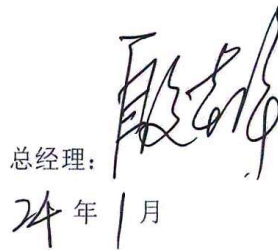 总经理：
24年1月